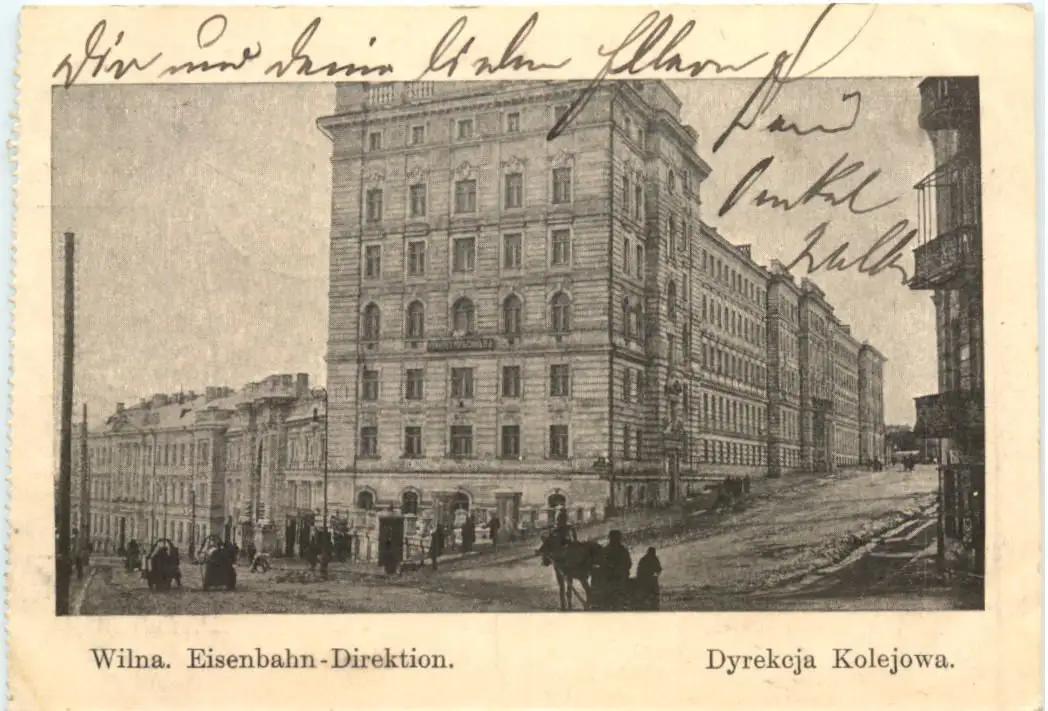 Dir und deine lieben Eltern
Dein
Onkel
Wilna. Eisenbahn-Direktion.
Dyrekcja Kolejowa.